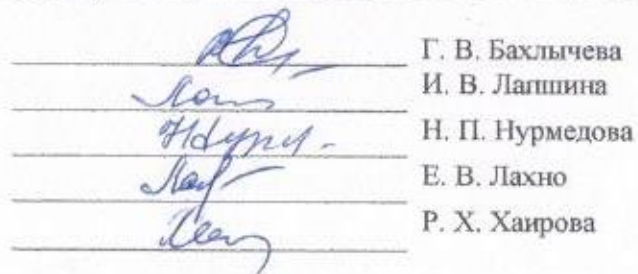 Г. В. Бахлычева
И. В. Лапшина
Н. П. Нурмедова
Е. В. Лахно
Р. Х. Хаирова